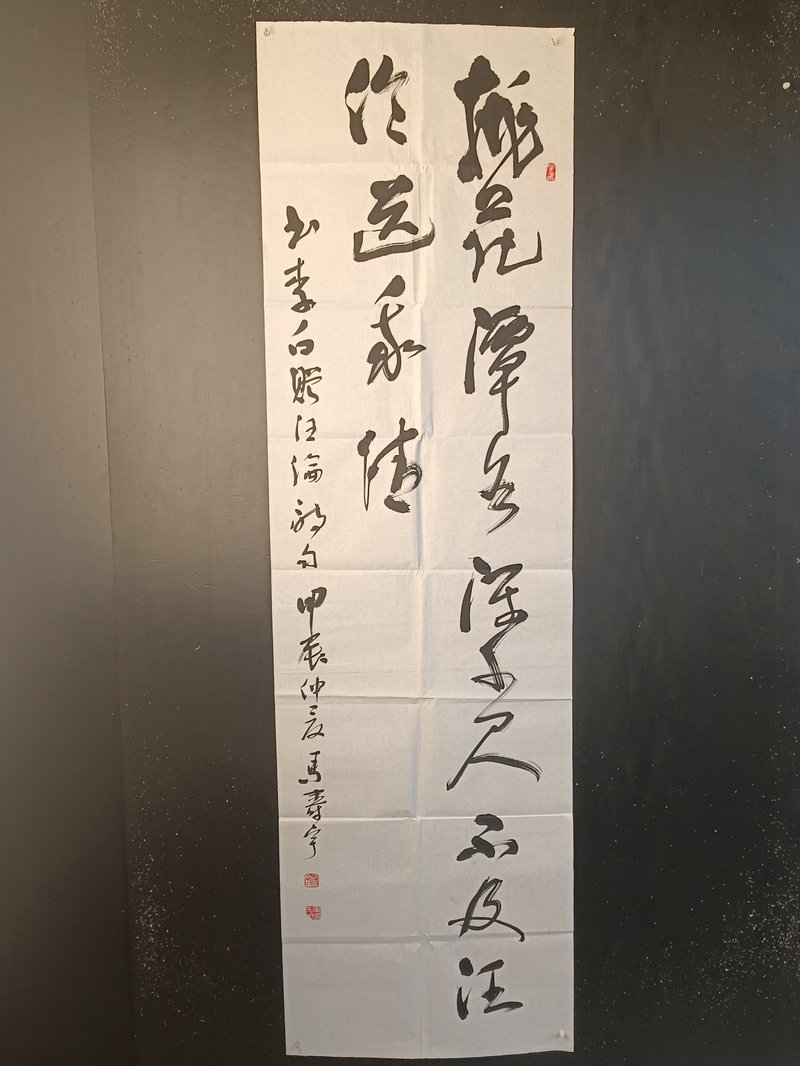 桃花潭水深千尺不及汪
伦送我情
书李白赠汪倫诗句 甲辰仲夏 馬寿宇